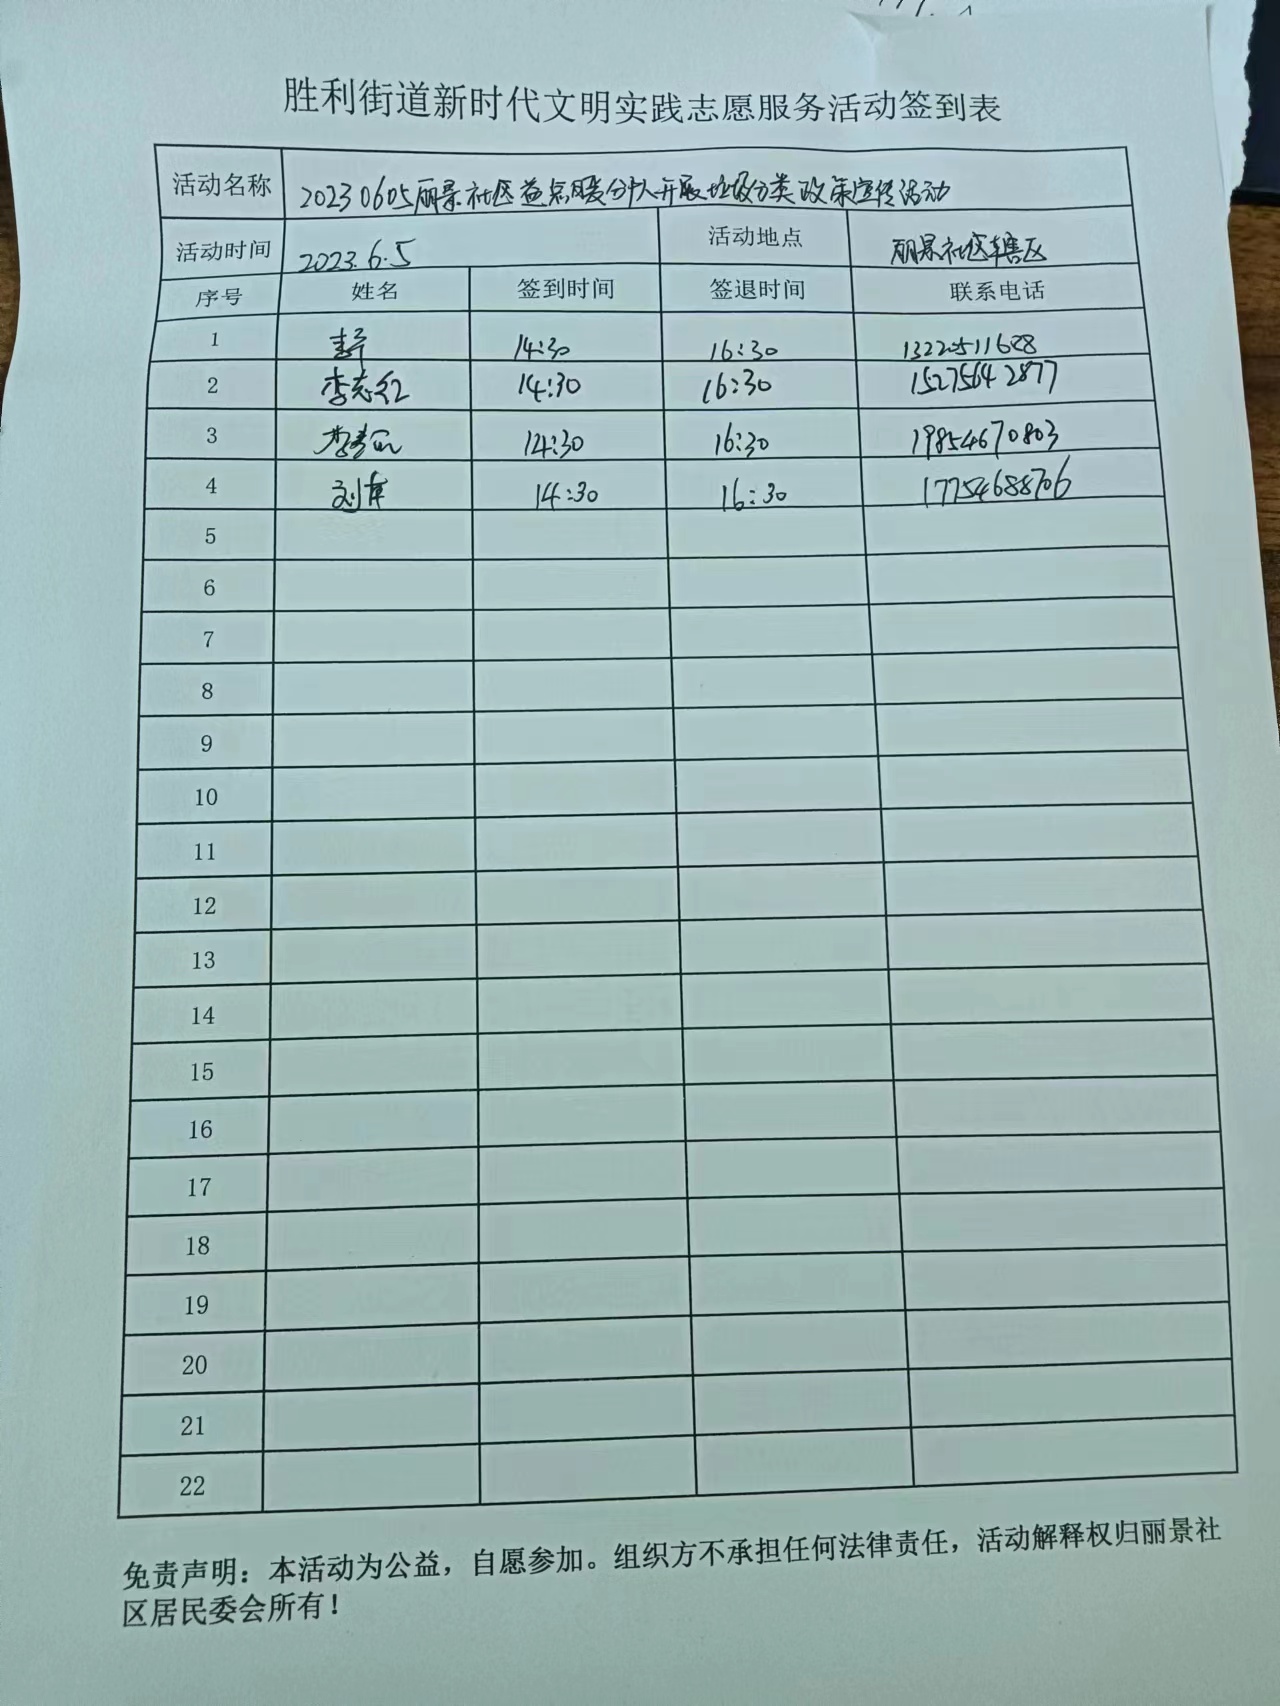 胜利街道新时代文明实践志愿服务活动签到表
活动名称 20230605丽景社区益点暖分队开展垃圾分类政策宣传活动
活动时间 2023.6.5 活动地点 丽景社区辖区
序号 姓名 签到时间 签退时间 联系电话
1 14:30 16:30 13220511628
2 李志红 14:30 16:30 15275642877
3 李 14:30 16:30 19854670803
4 刘 14:30 16:30 17754688706
5
6
7
8
9
10
11
12
13
14
15
16
17
18
19
20
21
22
免责声明：本活动为公益，自愿参加。组织方不承担任何法律责任，活动解释权归丽景社
区居民委会所有！